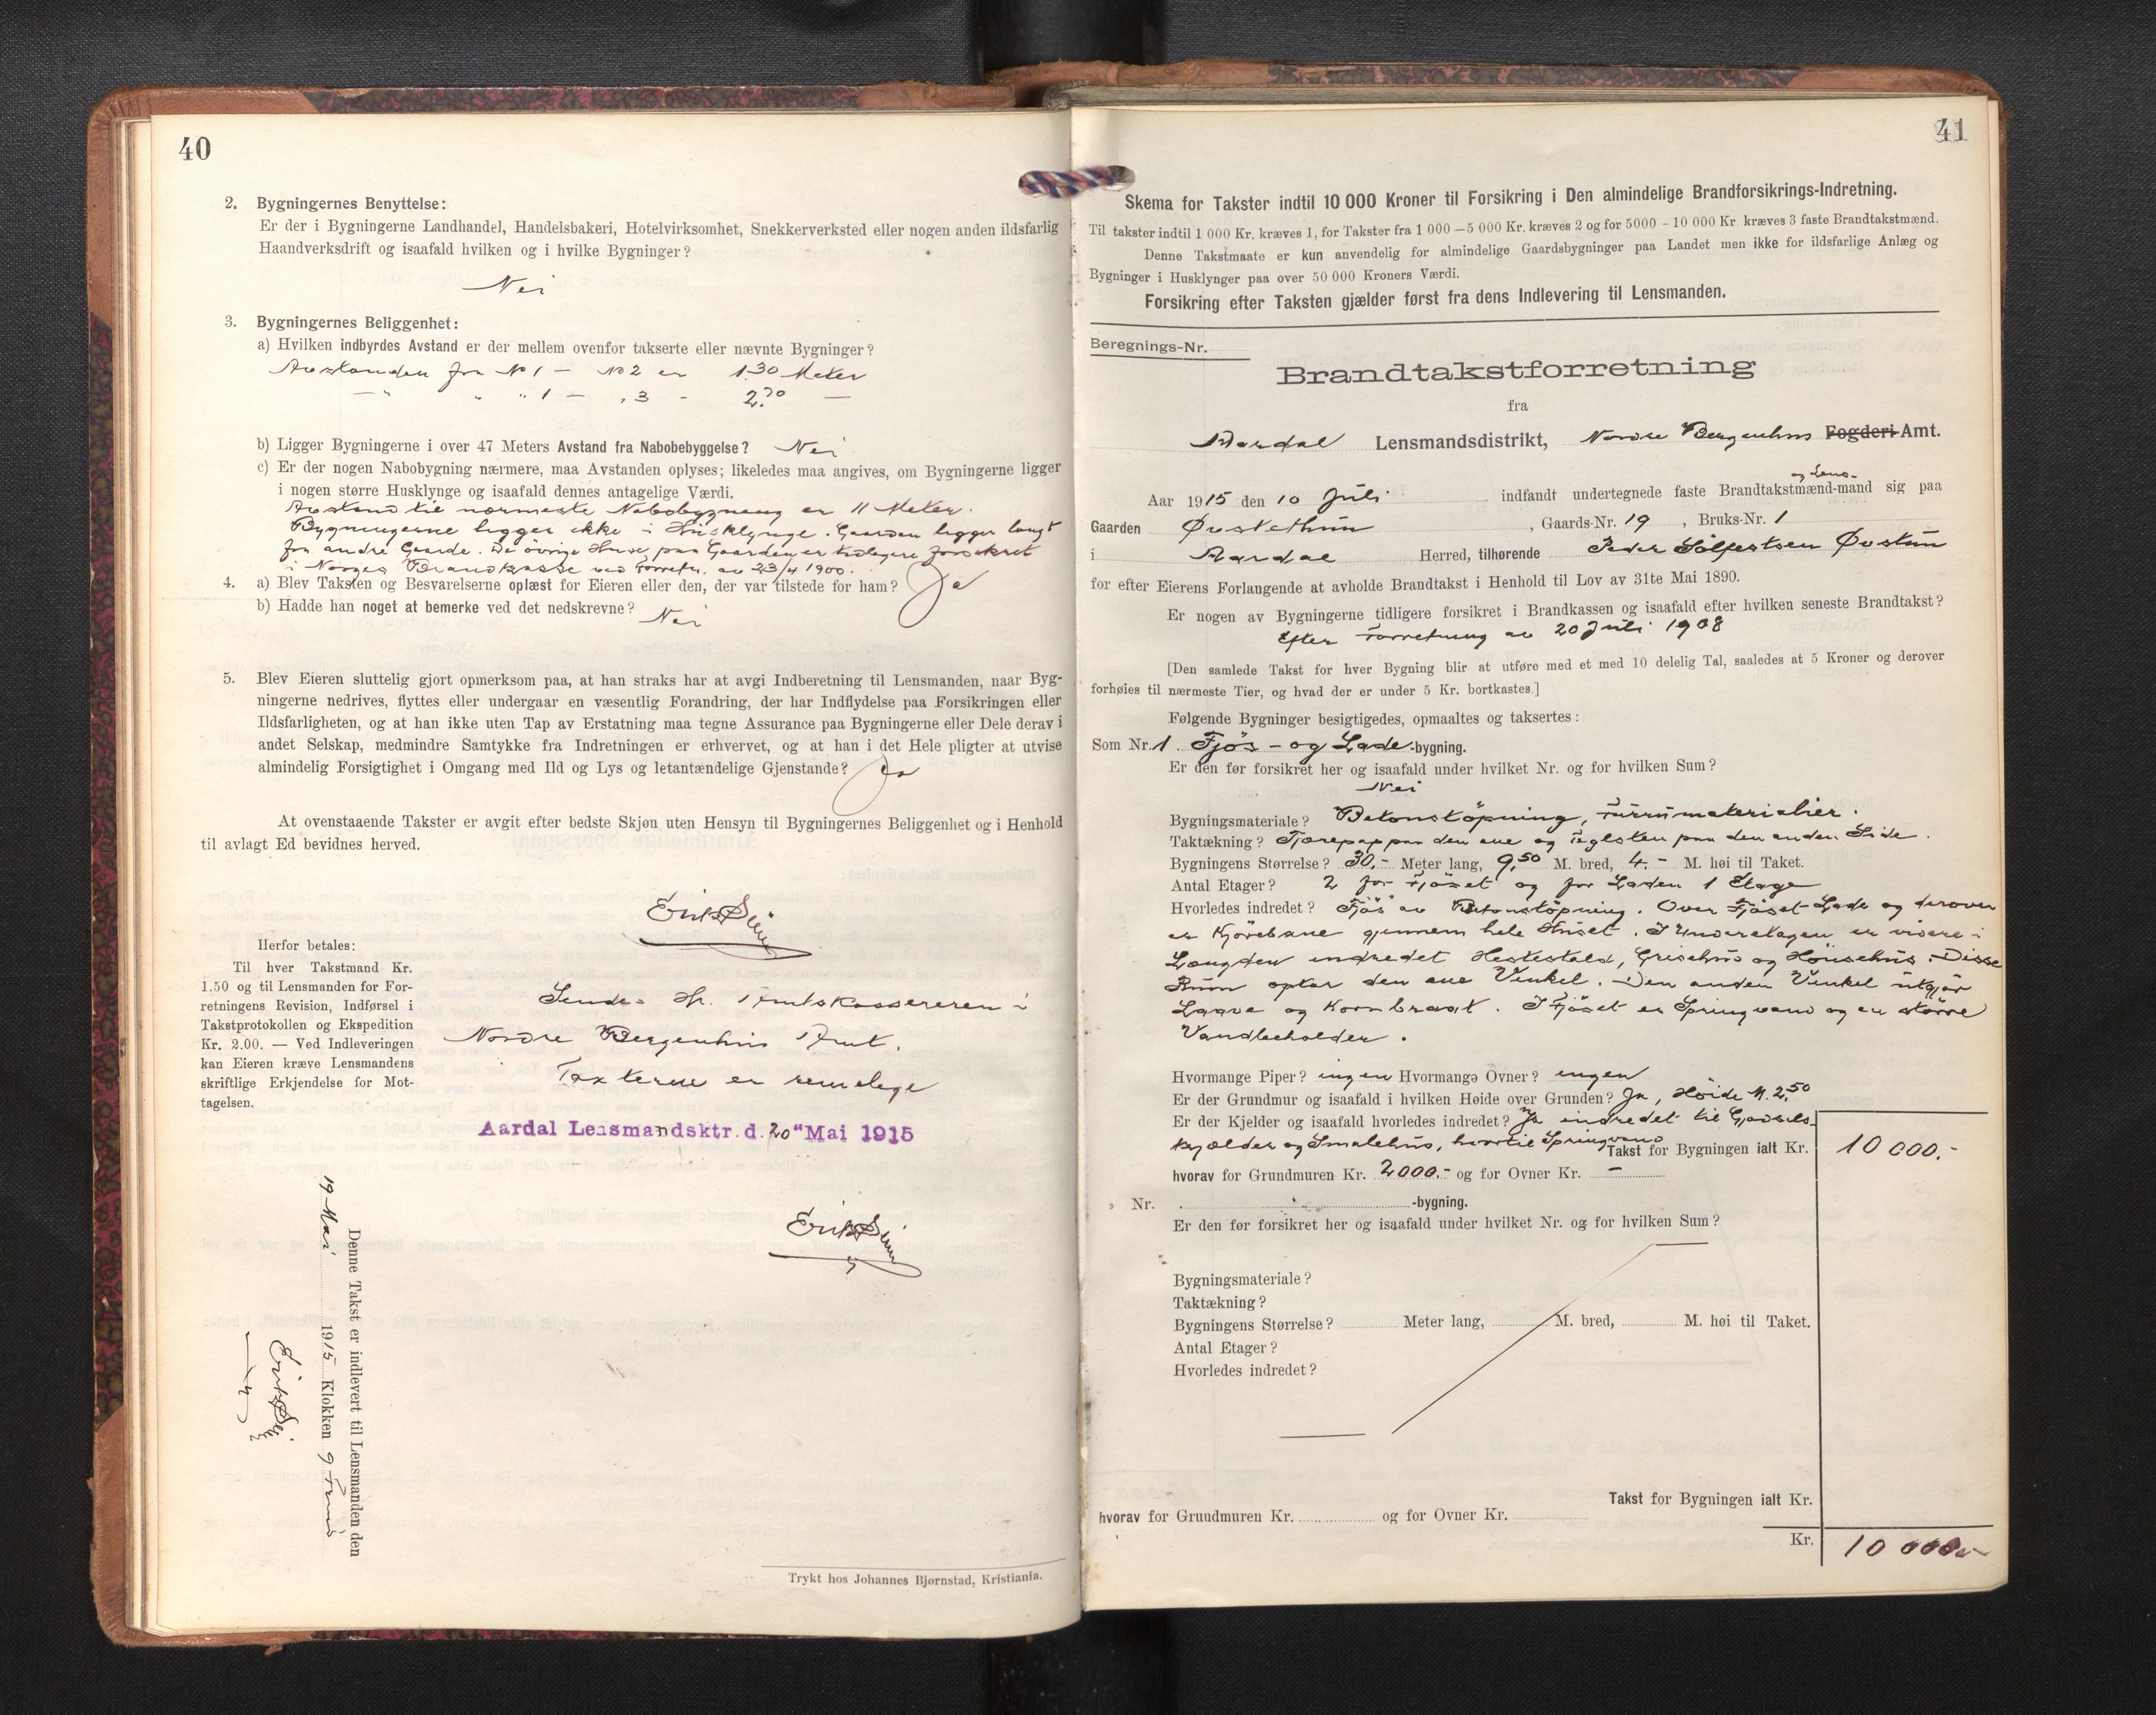 40
2. Bygningernes Benyttelse:
Er der i Bygningerne Landhandel, Handelsbakeri, Hotelvirksomhet, Snekkerverksted eller nogen anden ildsfarlig
Haandverksdrift og isaafald hvilken og i hvilke Bygninger?
Nei
3. Bygningernes Beliggenhet:
a) Hvilken indbyrdes Avstand er der mellem ovenfor takserte eller nævnte Bygninger?
Avstanden fra No 1 — No 2 er 1.30 Meter
— " " " 1 — " 3 - 2.70 —
b) Ligger Bygningerne i over 47 Meters Avstand fra Nabobebyggelse? Nei
c) Er der nogen Nabobygning nærmere, maa Avstanden oplyses; likeledes maa angives, om Bygningerne ligger
i nogen større Husklynge og isaafald dennes antagelige Værdi.
Avstand til nærmeste Nabobygning er 11 Meter.
Bygningerne ligger ikke i Husklynge. Gaarden ligger langt
fra andre Gaarde. De övrige Huse paa Gaarden er tidligere forsikret
i Norges Brandkasse ved Forretn. av 23/4 1900.
4. a) Blev Taksten og Besvarelserne oplæst for Eieren eller den, der var tilstede for ham? Ja
b) Hadde han noget at bemerke ved det nedskrevne? Nei
5. Blev Eieren sluttelig gjort opmerksom paa, at han straks har at avgi Indberetning til Lensmanden, naar Byg-
ningerne nedrives, flyttes eller undergaar en væsentlig Forandring, der har Indflydelse paa Forsikringen eller
Ildsfarligheten, og at han ikke uten Tap av Erstatning maa tegne Assurance paa Bygningerne eller Dele derav i
andet Selskap, medmindre Samtykke fra Indretningen er erhvervet, og at han i det Hele pligter at utvise
almindelig Forsigtighet i Omgang med Ild og Lys og letantændelige Gjenstande? Ja
At ovenstaaende Takster er avgit efter bedste Skjøn uten Hensyn til Bygningernes Beliggenhet og i Henhold
til avlagt Ed bevidnes herved.
Erik
Herfor betales:
Til hver Takstmand Kr.
1.50 og til Lensmanden for For-
retningens Revision, Indførsel i
Takstprotokollen og Ekspedition
Kr. 2.00. — Ved Indleveringen
kan Eieren kræve Lensmandens
skriftlige Erkjendelse for Mot-
tagelsen.
Sendes Hr. Amtskassereren i
Nordre Bergenhus Amt.
Taxterne er rimelige
Aardal Lensmandsktr. d. 20 " Mai 1915
Erik
Denne Takst er indlevert til Lensmanden den
19 Mai 1915 Klokken 9 Form
Erik
Trykt hos Johannes Bjørnstad, Kristiania.
41
Skema for Takster indtil 10 000 Kroner til Forsikring i Den almindelige Brandforsikrings-Indretning.
Til takster indtil 1 000 Kr. kræves 1, for Takster fra 1 000—5 000 Kr. kræves 2 og for 5000 - 10 000 Kr. kræves 3 faste Brandtakstmænd.
Denne Takstmaate er kun anvendelig for almindelige Gaardsbygninger paa Landet men ikke for ildsfarlige Anlæg og
Bygninger i Husklynger paa over 50 000 Kroners Værdi.
Forsikring efter Taksten gjælder først fra dens Indlevering til Lensmanden.
Beregnings-Nr.
Brandtakstforretning
fra
Aardal Lensmandsdistrikt, Nordre Bergenhus Fogderi Amt.
og Lens-
Aar 1915 den 10 Juli indfandt undertegnede faste Brandtakstmænd-mand sig paa
Gaarden Øvstethun, Gaards-Nr. 19, Bruks-Nr. 1
i Aardal Herred, tilhørende Peder Sölfestsen Øvstun
for efter Eierens Forlangende at avholde Brandtakst i Henhold til Lov av 31te Mai 1890.
Er nogen av Bygningerne tidligere forsikret i Brandkassen og isaafald efter hvilken seneste Brandtakst?
Efter Forretning av 20 Juli 1908
[Den samlede Takst for hver Bygning blir at utføre med et med 10 delelig Tal, saaledes at 5 Kroner og derover
forhøies til nærmeste Tier, og hvad der er under 5 Kr. bortkastes.]
Følgende Bygninger besigtigedes, opmaaltes og taksertes:
Som Nr. 1 Fjös- og Lade-bygning.
Er den før forsikret her og isaafald under hvilket Nr. og for hvilken Sum?
Nei
Bygningsmateriale? Betonstöpning, Furumaterialier.
Taktækning? Tjærepap paa den ene og Taglsten paa den anden Side.
Bygningens Størrelse? 30.- Meter lang, 9.50 M. bred, 4.- M. høi til Taket.
Antal Etager? 2 for Fjöset og for Laden 1 Etage
Hvorledes indredet? Fjös av Betonstöpning. Over Fjöset Lade og derover
er Kjörebane gjennem hele Huset. I Underetagen er videre i
Længden indredet Hestestald, Grisehus og Hönsehus. Disse
Rum optar den ene Vinkel. Den anden Vinkel utgjör
Laave og Kornbraat. I Fjöset er Springvand og en större
Vandbeholder.
Hvormange Piper? ingen Hvormange Ovner? ingen
Er der Grundmur og isaafald i hvilken Høide over Grunden? Ja, Höide M. 2.50
Er der Kjelder og isaafald hvorledes indredet? Ja indredet til Gjödsels-
kjælder og Smalehus, hvortil Springvand
Takst for Bygningen ialt Kr. 10 000.-
hvorav for Grundmuren Kr. 2000.- og for Ovner Kr. —
Nr. -bygning.
Er den før forsikret her og isaafald under hvilket Nr. og for hvilken Sum?
Bygningsmateriale?
Taktækning?
Bygningens Størrelse? Meter lang, M. bred, M. høi til Taket.
Antal Etager?
Hvorledes indredet?
Takst for Bygningen ialt Kr.
hvorav for Grundmuren Kr. og for Ovner Kr.
Kr. 10 000.-